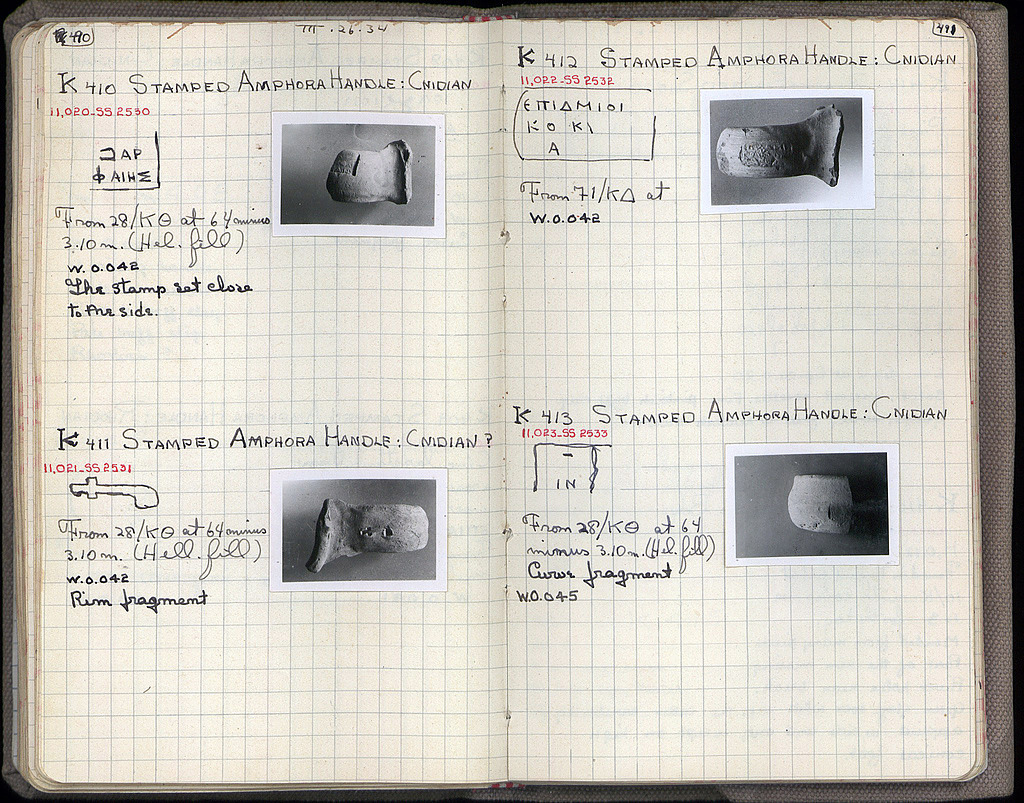 490
III.26.34
K 410 STAMPED AMPHORA HANDLE: CNIDIAN
11,020-SS 2530
ΑΡ
ΦΑΙΗΣ
From 28/ΚΘ at 64 minus
3.10 m. (Hel. fill)
W.0.042
The stamp set close
to the side.
K 411 STAMPED AMPHORA HANDLE: CNIDIAN?
11,021-SS 2531
From 28/ΚΘ at 64 minus
3.10 m. (Hell. fill)
W.0.042
Rim fragment
491
K 412 STAMPED AMPHORA HANDLE: CNIDIAN
11,022-SS 2532
ЄΠΙΔΜΙΟΙ
ΚΟ ΚΛ
Α
From 71/ΚΔ at
W.0.042
K 413 STAMPED AMPHORA HANDLE: CNIDIAN
11,023-SS 2533
–
ΙΝ
From 28/ΚΘ at 64
minus 3.10 m. (Hel. fill)
Curve fragment
W.0.045